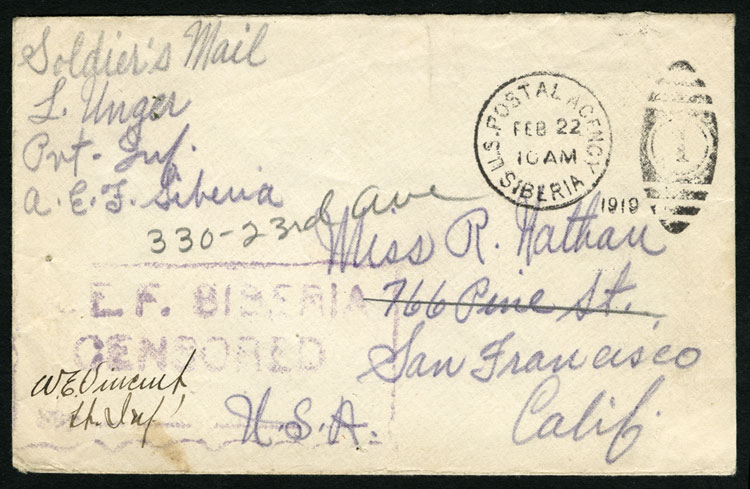 Soldier's Mail
L. Unger
Pvt - Inf.
A. E. F. Siberia
U.S. POSTAL AGENCY
FEB 22
10 AM
SIBERIA
1919
330-23rd Ave
Miss R. Nathan
766 Pine St.
San Francisco
Calif.
U.S.A.
E.F. SIBERIA
CENSORED
W.E. Vincent
Lt. Inf.